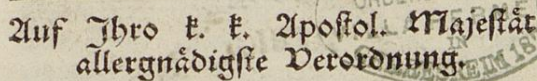 Auf Ihro k. k. Apostol. Majestät
allergnädigste Verordnung.